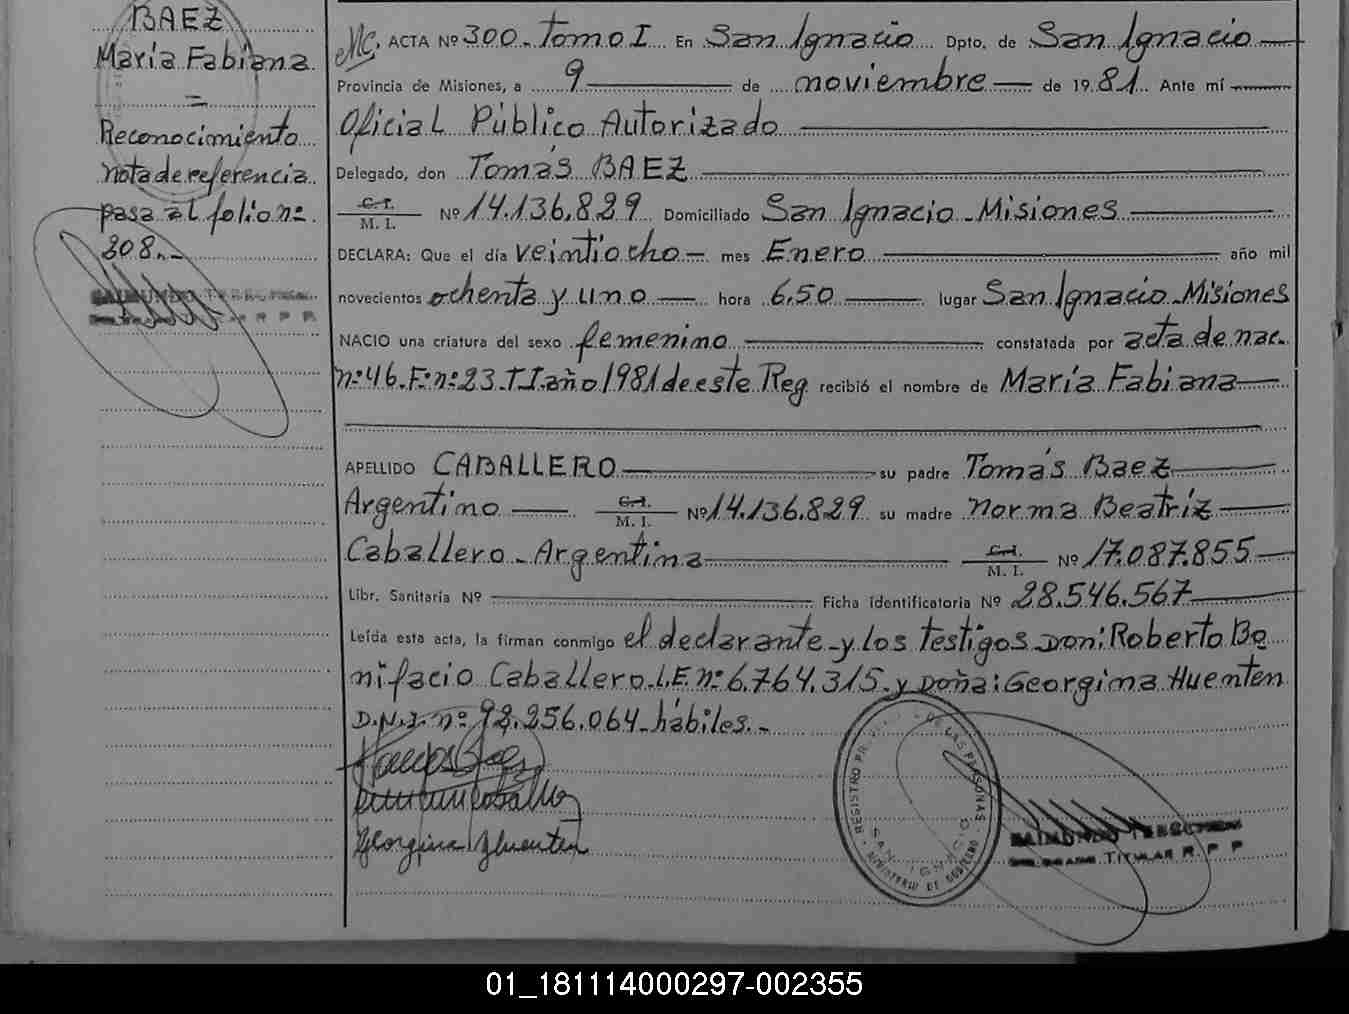 BAEZ
María Fabiana
=
Reconocimiento
nota de referencia
pasa al folio nº
308.-
RAIMUNDO
R P P
Mc. ACTA Nº 300. Tomo I En San Ignacio Dpto. de San Ignacio
Provincia de Misiones, a 9 de noviembre de 1981. Ante mí
Oficial Público Autorizado
Delegado, don Tomás BAEZ
C. I.
M. I. Nº 14.136.829 Domiciliado San Ignacio - Misiones
DECLARA: Que el día veintiocho mes Enero año mil
novecientos ochenta y uno hora 6,50 lugar San Ignacio - Misiones
NACIO una criatura del sexo femenino constatada por acta de nac.
nº 46. Fº nº 23. T I. año 1981 de este Reg recibió el nombre de María Fabiana
APELLIDO CABALLERO su padre Tomás Baez
Argentino C. I. M. I. Nº 14.136.829 su madre Norma Beatríz
Caballero - Argentina C. I. M. I. Nº 17.087.855
Libr. Sanitaria Nº Ficha Identificatoria Nº 28.546.567
Leída esta acta, la firman conmigo el declarante - y los testigos Don: Roberto Bo
nifacio Caballero. L.E. nº 6.764.315 y Doña: Georgina Huenten
D.N.I. nº 92.256.064 - hábiles.-
Georgina Huenten
REGISTRO DE LAS PERSONAS
SAN IGNACIO
MINISTERIO DE GOBIERNO
RAIMUNDO
TITULAR R. P P
01_181114000297-002355